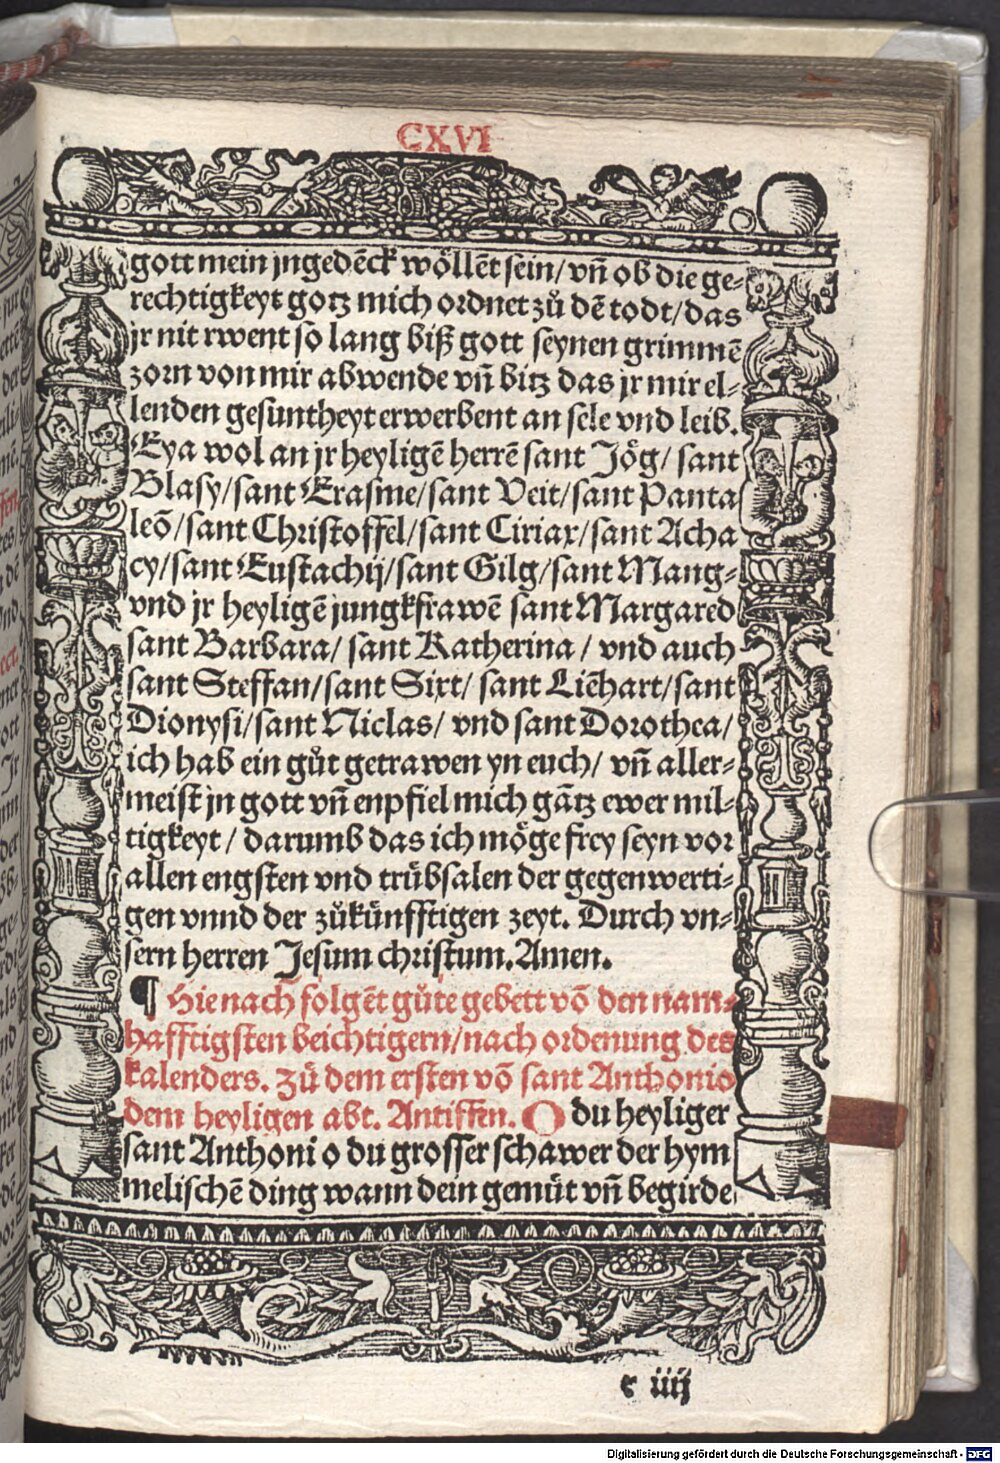 CXVI
gott mein jngedēck wöllēt sein/ vn̄ ob die ge⸗
rechtigkeyt gotz mich ordnet zů dē todt/ das
jr nit rwent so lang biß gott seynen grimmē
zorn von mir abwende vn̄ bitz das jr mir el⸗
lenden gesuntheyt erwerbent an sele vnd leib.
Eya wol an jr heyligē herrē sant Jög/ sant
Blasy/ sant Erasme/ sant Veit/ sant Panta
leō/ sant Christoffel/ sant Ciriax/ sant Acha
cy/ sant Eustachij/ sant Gilg/ sant Mang⸗
vnd jr heyligē jungkfrawē sant Margared
sant Barbara/ sant Katherina/ vnd auch
sant Steffan/ sant Sixt/ sant Liēhart/ sant
Dionysi/ sant Niclas/ vnd sant Dorothea/
ich hab ein gůt getrawen yn euch/ vn̄ aller⸗
meist jn gott vn̄ enpfiel mich gātz ewer mil⸗
tigkeyt/ darumb das ich möge frey seyn vor
allen engsten vnd trübsalen der gegenwerti⸗
gen vnnd der zůkünfftigen zeyt. Durch vn⸗
sern herren Jesum christum. Amen.
¶ Hienach folgēt gůte gebett vō den nam⸗
hafftigsten beichtigern/ nach ordenung des
kalenders. Zů dem ersten vō sant Anthonio
dem heyligen abt. Antiffen. O du heyliger
sant Anthoni o du grosser schawer der hym
melischē ding wann dein gemüt vn̄ begirde
r iiij
Digitalisierung gefördert durch die Deutsche Forschungsgemeinschaft - DFG